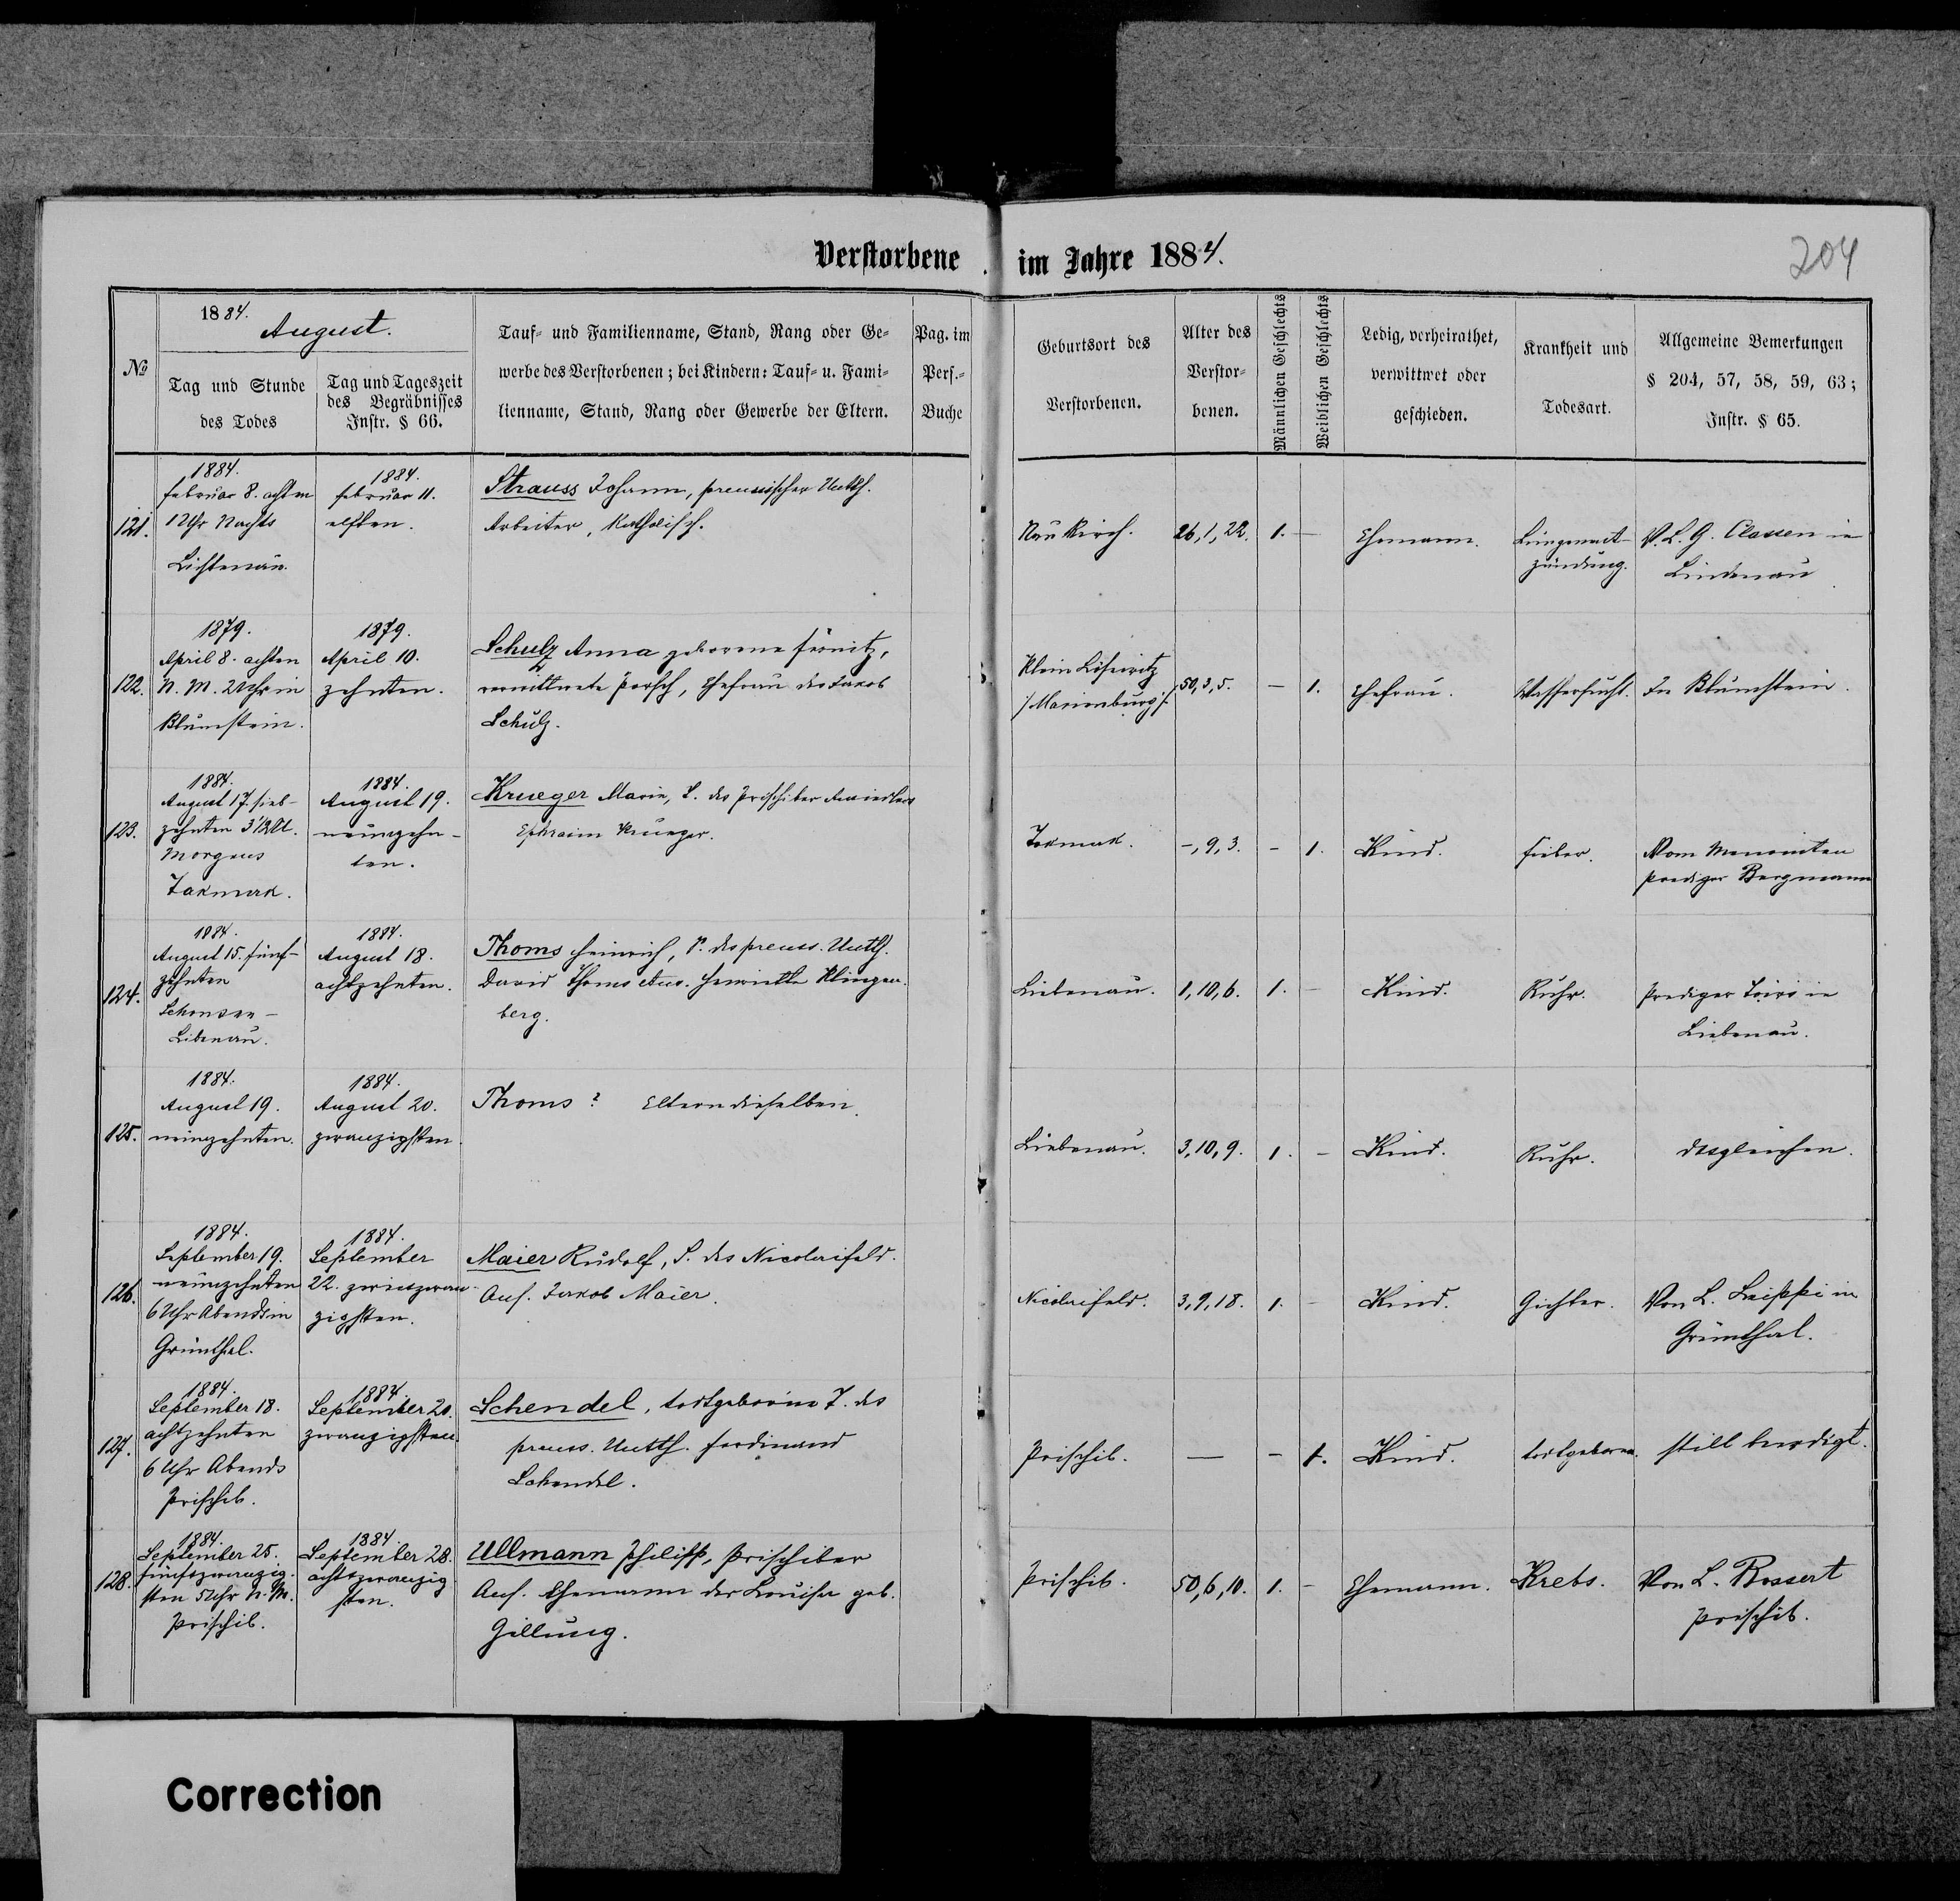 Verstorbene im Jahre 1884.
204
№
1884. August.
Tag und Stunde
des Todes
Tag und Tageszeit
des Begräbnisses
Instr. § 66.
Tauf- und Familienname, Stand, Rang oder Ge-
werbe des Verstorbenen; bei Kindern: Tauf- u. Fami-
lienname, Stand, Rang oder Gewerbe der Eltern.
Pag. im
Pers.-
Buche
Geburtsort des
Verstorbenen.
Alter des
Verstor-
benen.
Männlichen Geschlechts
Weiblichen Geschlechts
Ledig, verheirathet,
verwittwet oder
geschieden.
Krankheit und
Todesart.
Allgemeine Bemerkungen
§ 204, 57, 58, 59, 63;
Instr. § 65.
121.
1884.
Februar 8. achten
1 Uhr Nachts
Lichtenau.
1884.
Februar 11.
elften.
Strauss Johann, preussischer Unterth.
Arbeiter, Katholisch.
Neukirch.
26, 1, 22.
1. —
Ehemann.
Lungenent-
zündung.
V. L. G. Classen in
Lindenau
122.
1879.
April 8. achten
N. M. 2 Uhr in
Blumstein.
1879.
April 10.
zehnten.
Schulz Anna geborene
verwittwete Porsch, Ehefrau des Jakob
Schulz.
Klein
/Marienburg/.
50, 3, 5.
— 1.
Ehefrau.
Wassersucht.
In Blumstein.
123.
1884.
August 17. sieb-
zehnten 3 1/2 U.
Morgens
Takmak.
1884.
August 19.
neunzehn-
ten.
Krueger Marie, T. des Prischiber Ansiedlers
Ephraim Krueger.
Tokmak.
—, 9, 3.
— 1.
Kind.
Fieber.
Vom Menoniten
Prediger Bergmann
124.
1884.
August 15. fünf-
zehnten
Schonsee-
Libenau.
1884.
August 18.
achtzehnten.
Thoms Heinrich, S. des preuss. Unterth.
David Thoms u. Henriette Klingen-
berg.
Liebenau.
1, 10, 6.
1. —
Kind.
Ruhr.
Prediger in
Liebenau.
125.
1884.
August 19.
neunzehnten.
1884.
August 20.
zwanzigsten.
Thoms ? Eltern dieselben.
Liebenau.
3, 10, 9.
1. —
Kind.
Ruhr.
desgleichen.
126.
1884.
September 19.
neunzehnten
6 Uhr Abends in
Grünthal.
1884.
September
22. zweiszwan-
zigsten.
Maier Rudolf, S. des Nicolaifeld.
Ans. Jakob Maier.
Nicolaifeld.
3, 9, 18.
1. —
Kind.
Gichter.
Von L. Leippi in
Grünthal.
127.
1884.
September 18.
achtzehnten
6 Uhr Abends
Prischib.
1884.
September 20.
zwanzigsten.
Schendel, todtgeborne T. des
preuss. Unterth. Ferdinand
Schendel.
Prischib.
—
— 1.
Kind.
todtgeboren.
still beerdigt.
128.
1884.
September 25.
fünfszwanzig-
sten 5 Uhr N. M.
Prischib.
1884
September 28.
achtszwanzig
sten.
Ullmann Philipp, Prischiber
Ans. Ehemann der Louise geb.
Gillung.
Prischib.
50, 6, 10.
1. —
Ehemann.
Krebs.
Von L. Bossert
Prischib.
Correction